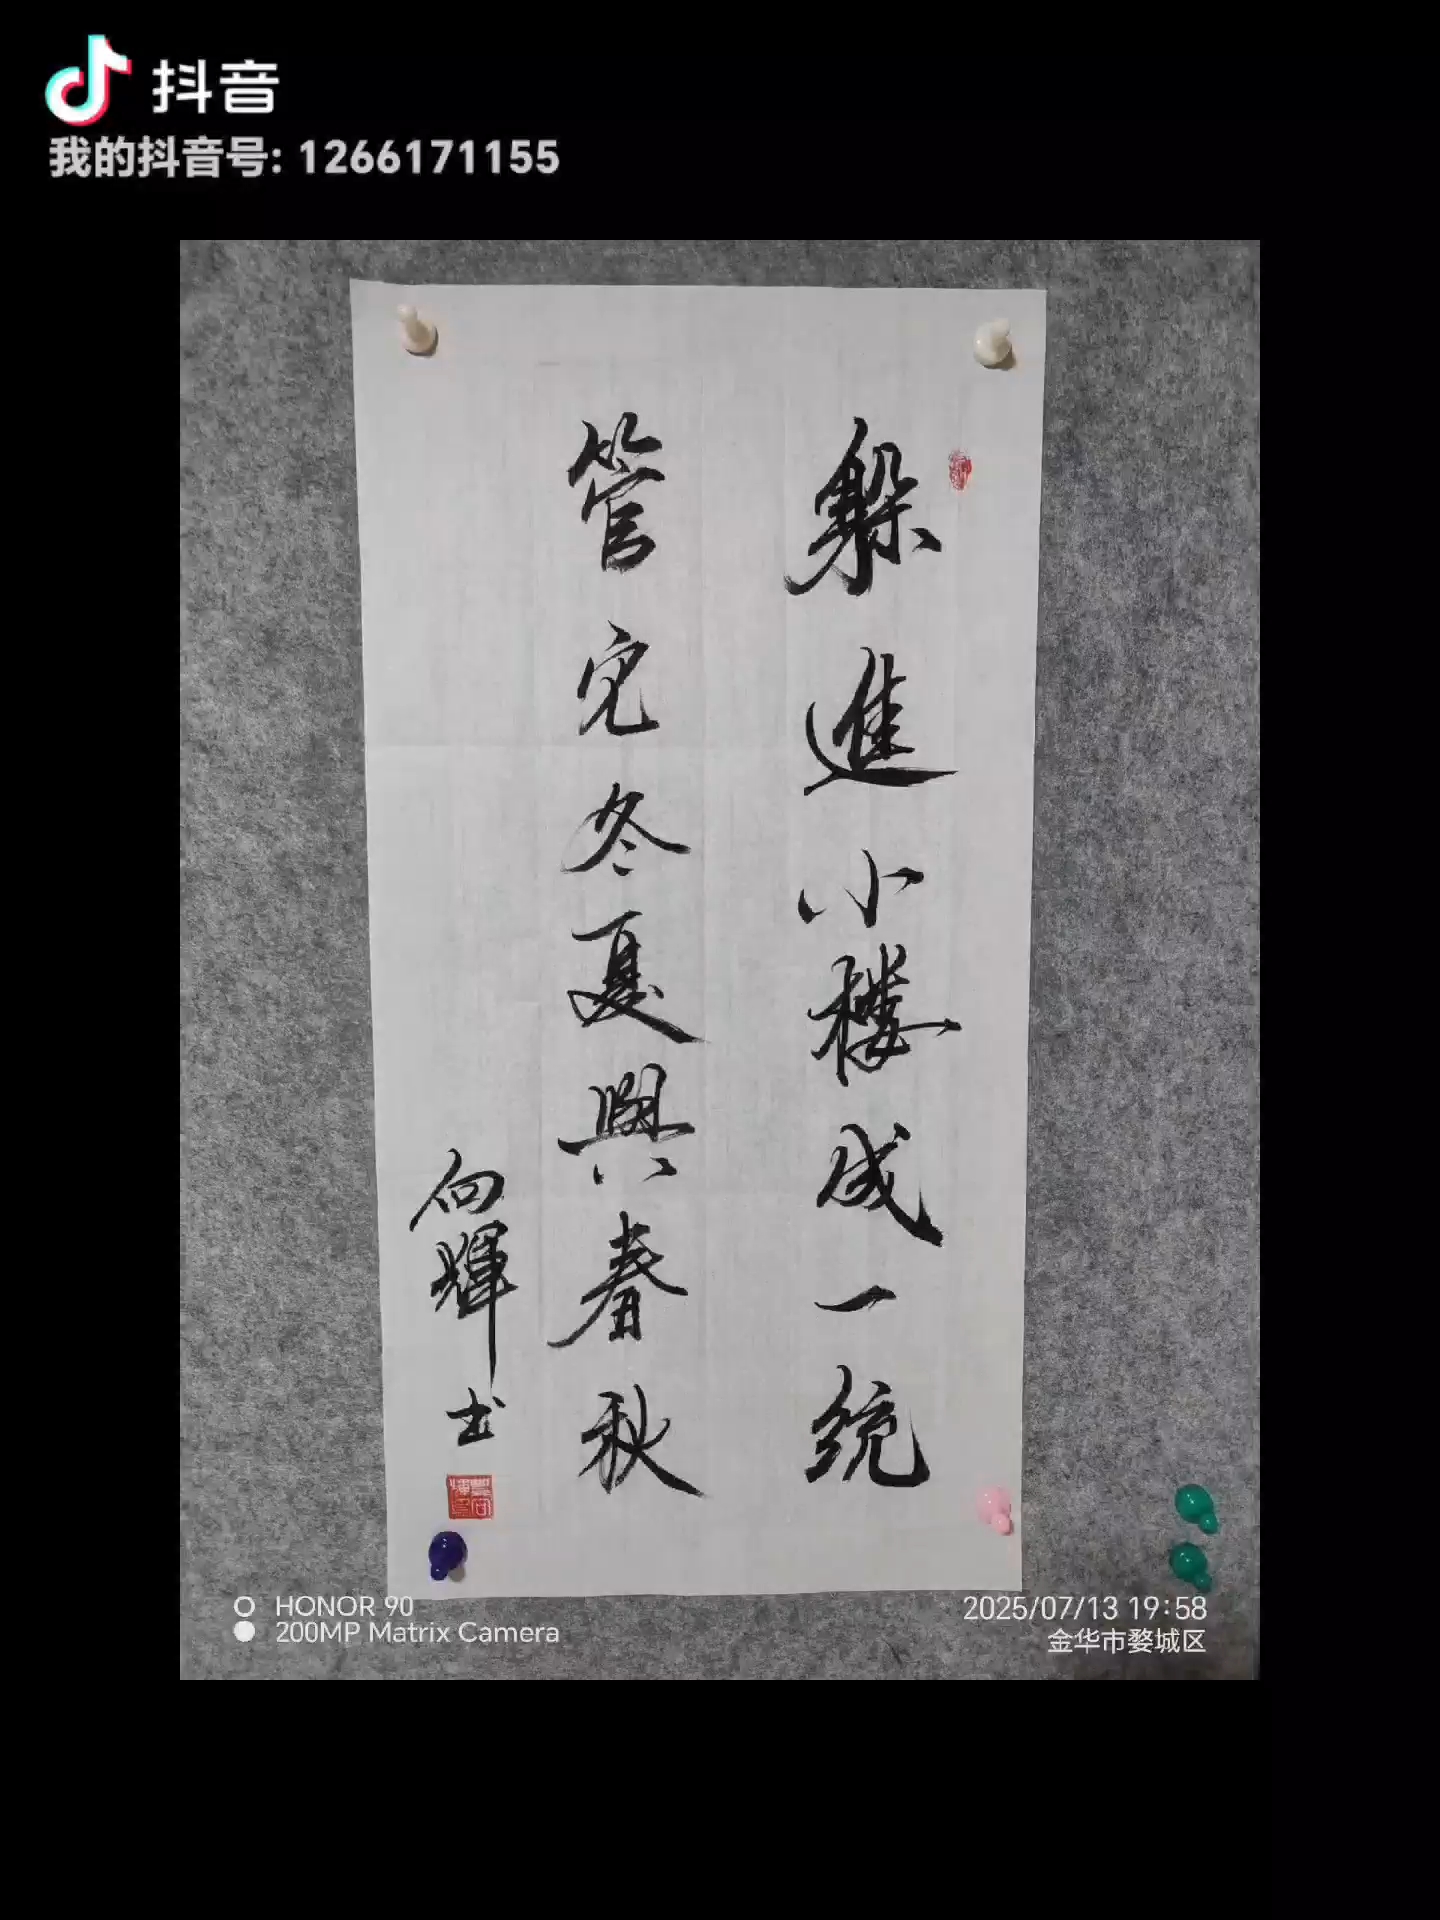 抖音
我的抖音号: 1266171155
躲進小楼成一統
管它冬夏與春秋
向輝书
HONOR 90
200MP Matrix Camera
2025/07/13 19:58
金华市婺城区